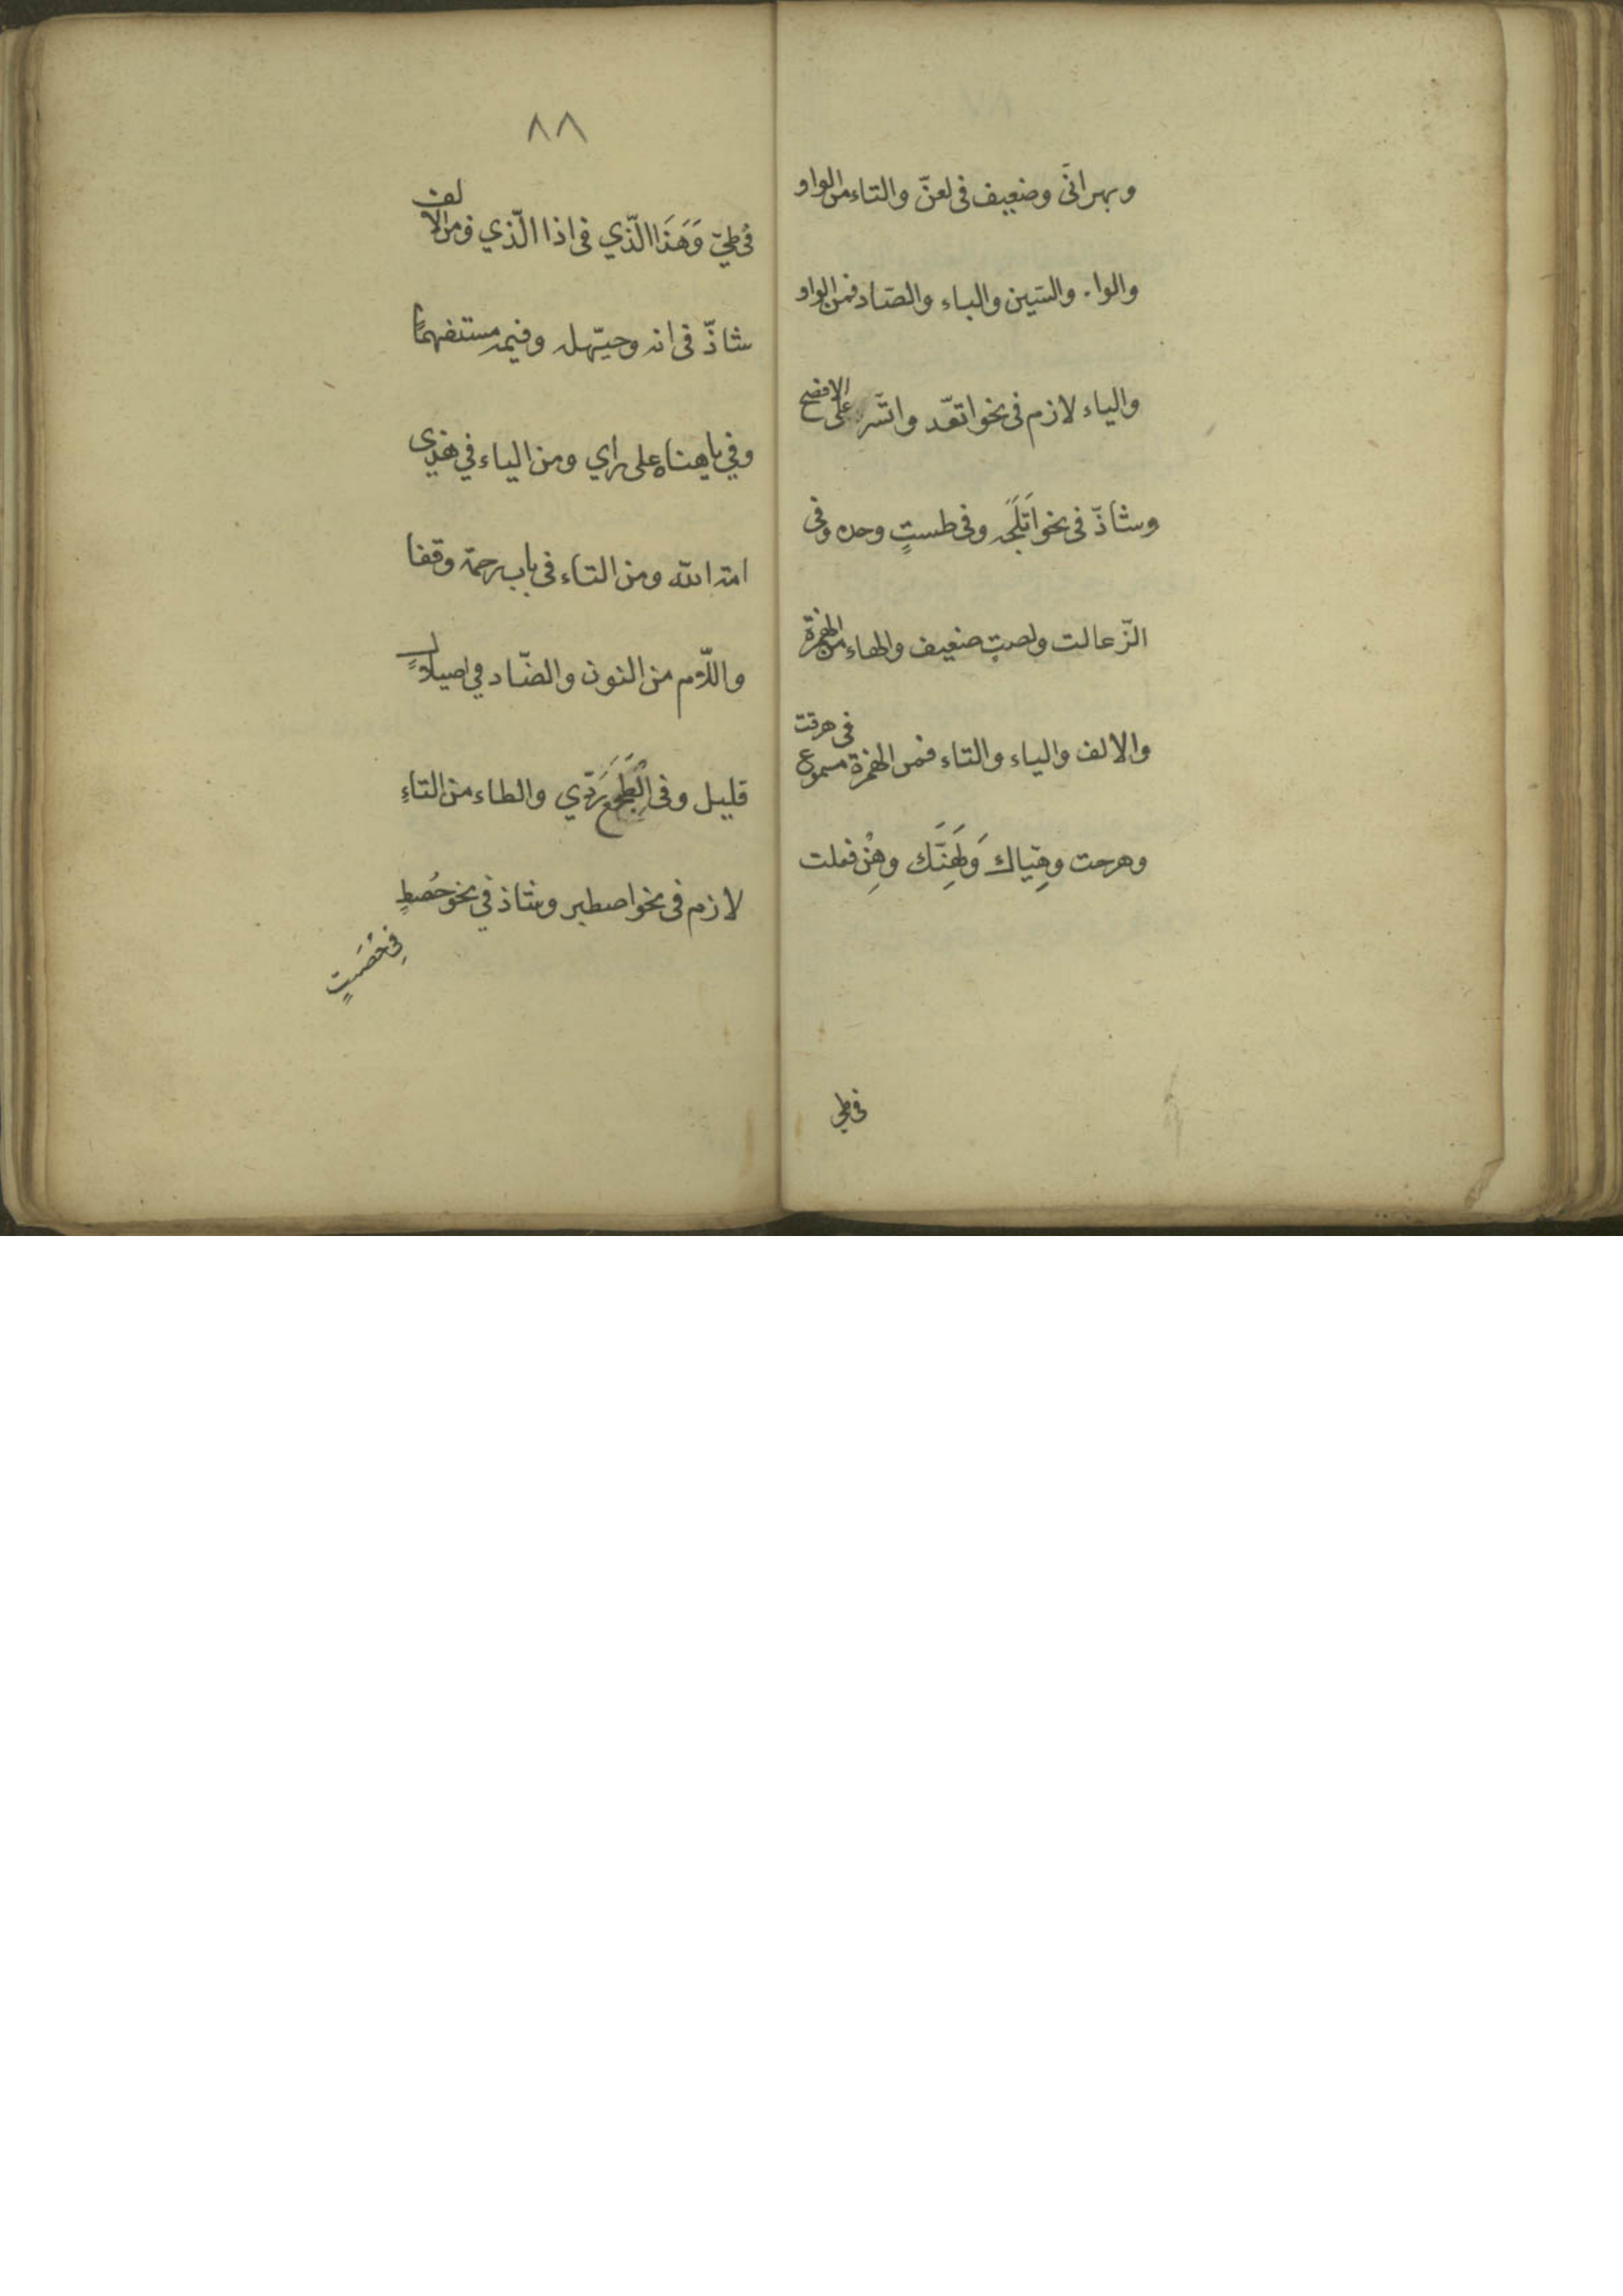 وبهرانى وضعيف فى لعنّ والتاء من الواو
والوا. والسّين والباء والصّاد فمن الواو
والياء لازم فى نحو اتعّد واتّسر على الافصح
وشاذّ فى نحو اَتلَجَه وفى طستٍ وحده وفى
الذّعالت ولصتٍ ضعيف والهاء من الهمزة
والالف والياء والتاء فمن الهمزة مسموع فى هرقت
وهرحت وهِيّاك وَلَهِنَّك وهِنْ فعلت
فى طي
٨٨
فى طيّ وَهَذَا الّذي فى اذا الّذي ومن الالف
شاذّ فى انه وحيّهله وفيمه مستفهمًا
وفي ياهناه على راي ومن الياء في هذى
امة الله ومن التاء فى باب رحمة وقفا
واللّام من النون والضّاد في اصيلالٍ
قليل وفى الْطَجَعَ رَدّي والطاء من التاءِ
لازم فى نحو اصطبر وشاذ في نحو حُصطٍ
فِي حُصَتٍ